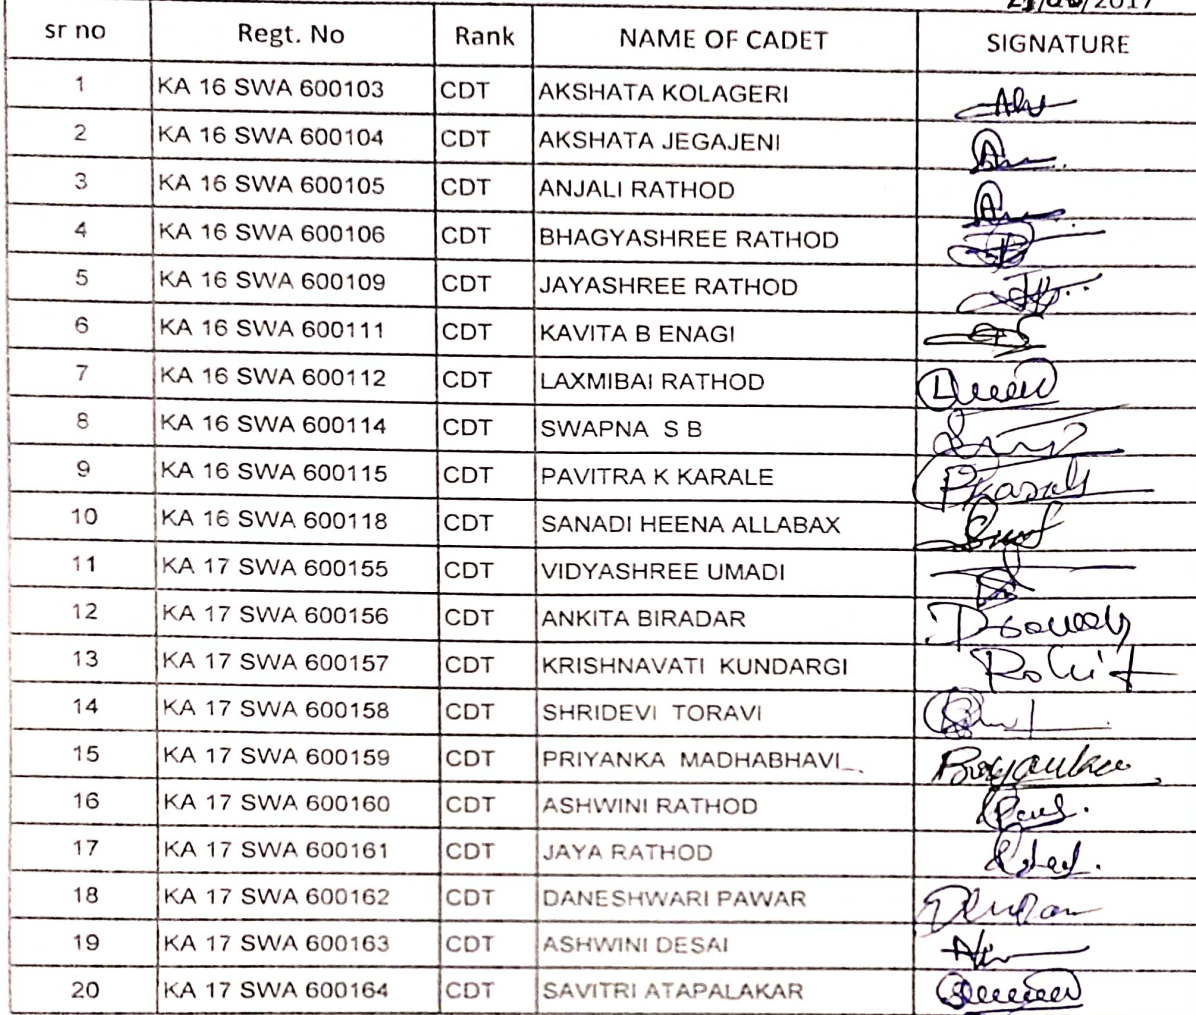 /2017
sr no Regt. No Rank NAME OF CADET SIGNATURE
1 KA 16 SWA 600103 CDT AKSHATA KOLAGERI
2 KA 16 SWA 600104 CDT AKSHATA JEGAJENI
3 KA 16 SWA 600105 CDT ANJALI RATHOD
4 KA 16 SWA 600106 CDT BHAGYASHREE RATHOD
5 KA 16 SWA 600109 CDT JAYASHREE RATHOD
6 KA 16 SWA 600111 CDT KAVITA B ENAGI
7 KA 16 SWA 600112 CDT LAXMIBAI RATHOD
8 KA 16 SWA 600114 CDT SWAPNA S B
9 KA 16 SWA 600115 CDT PAVITRA K KARALE
10 KA 16 SWA 600118 CDT SANADI HEENA ALLABAX
11 KA 17 SWA 600155 CDT VIDYASHREE UMADI
12 KA 17 SWA 600156 CDT ANKITA BIRADAR
13 KA 17 SWA 600157 CDT KRISHNAVATI KUNDARGI Rohit
14 KA 17 SWA 600158 CDT SHRIDEVI TORAVI
15 KA 17 SWA 600159 CDT PRIYANKA MADHABHAVI Priyanka
16 KA 17 SWA 600160 CDT ASHWINI RATHOD
17 KA 17 SWA 600161 CDT JAYA RATHOD
18 KA 17 SWA 600162 CDT DANESHWARI PAWAR
19 KA 17 SWA 600163 CDT ASHWINI DESAI
20 KA 17 SWA 600164 CDT SAVITRI ATAPALAKAR